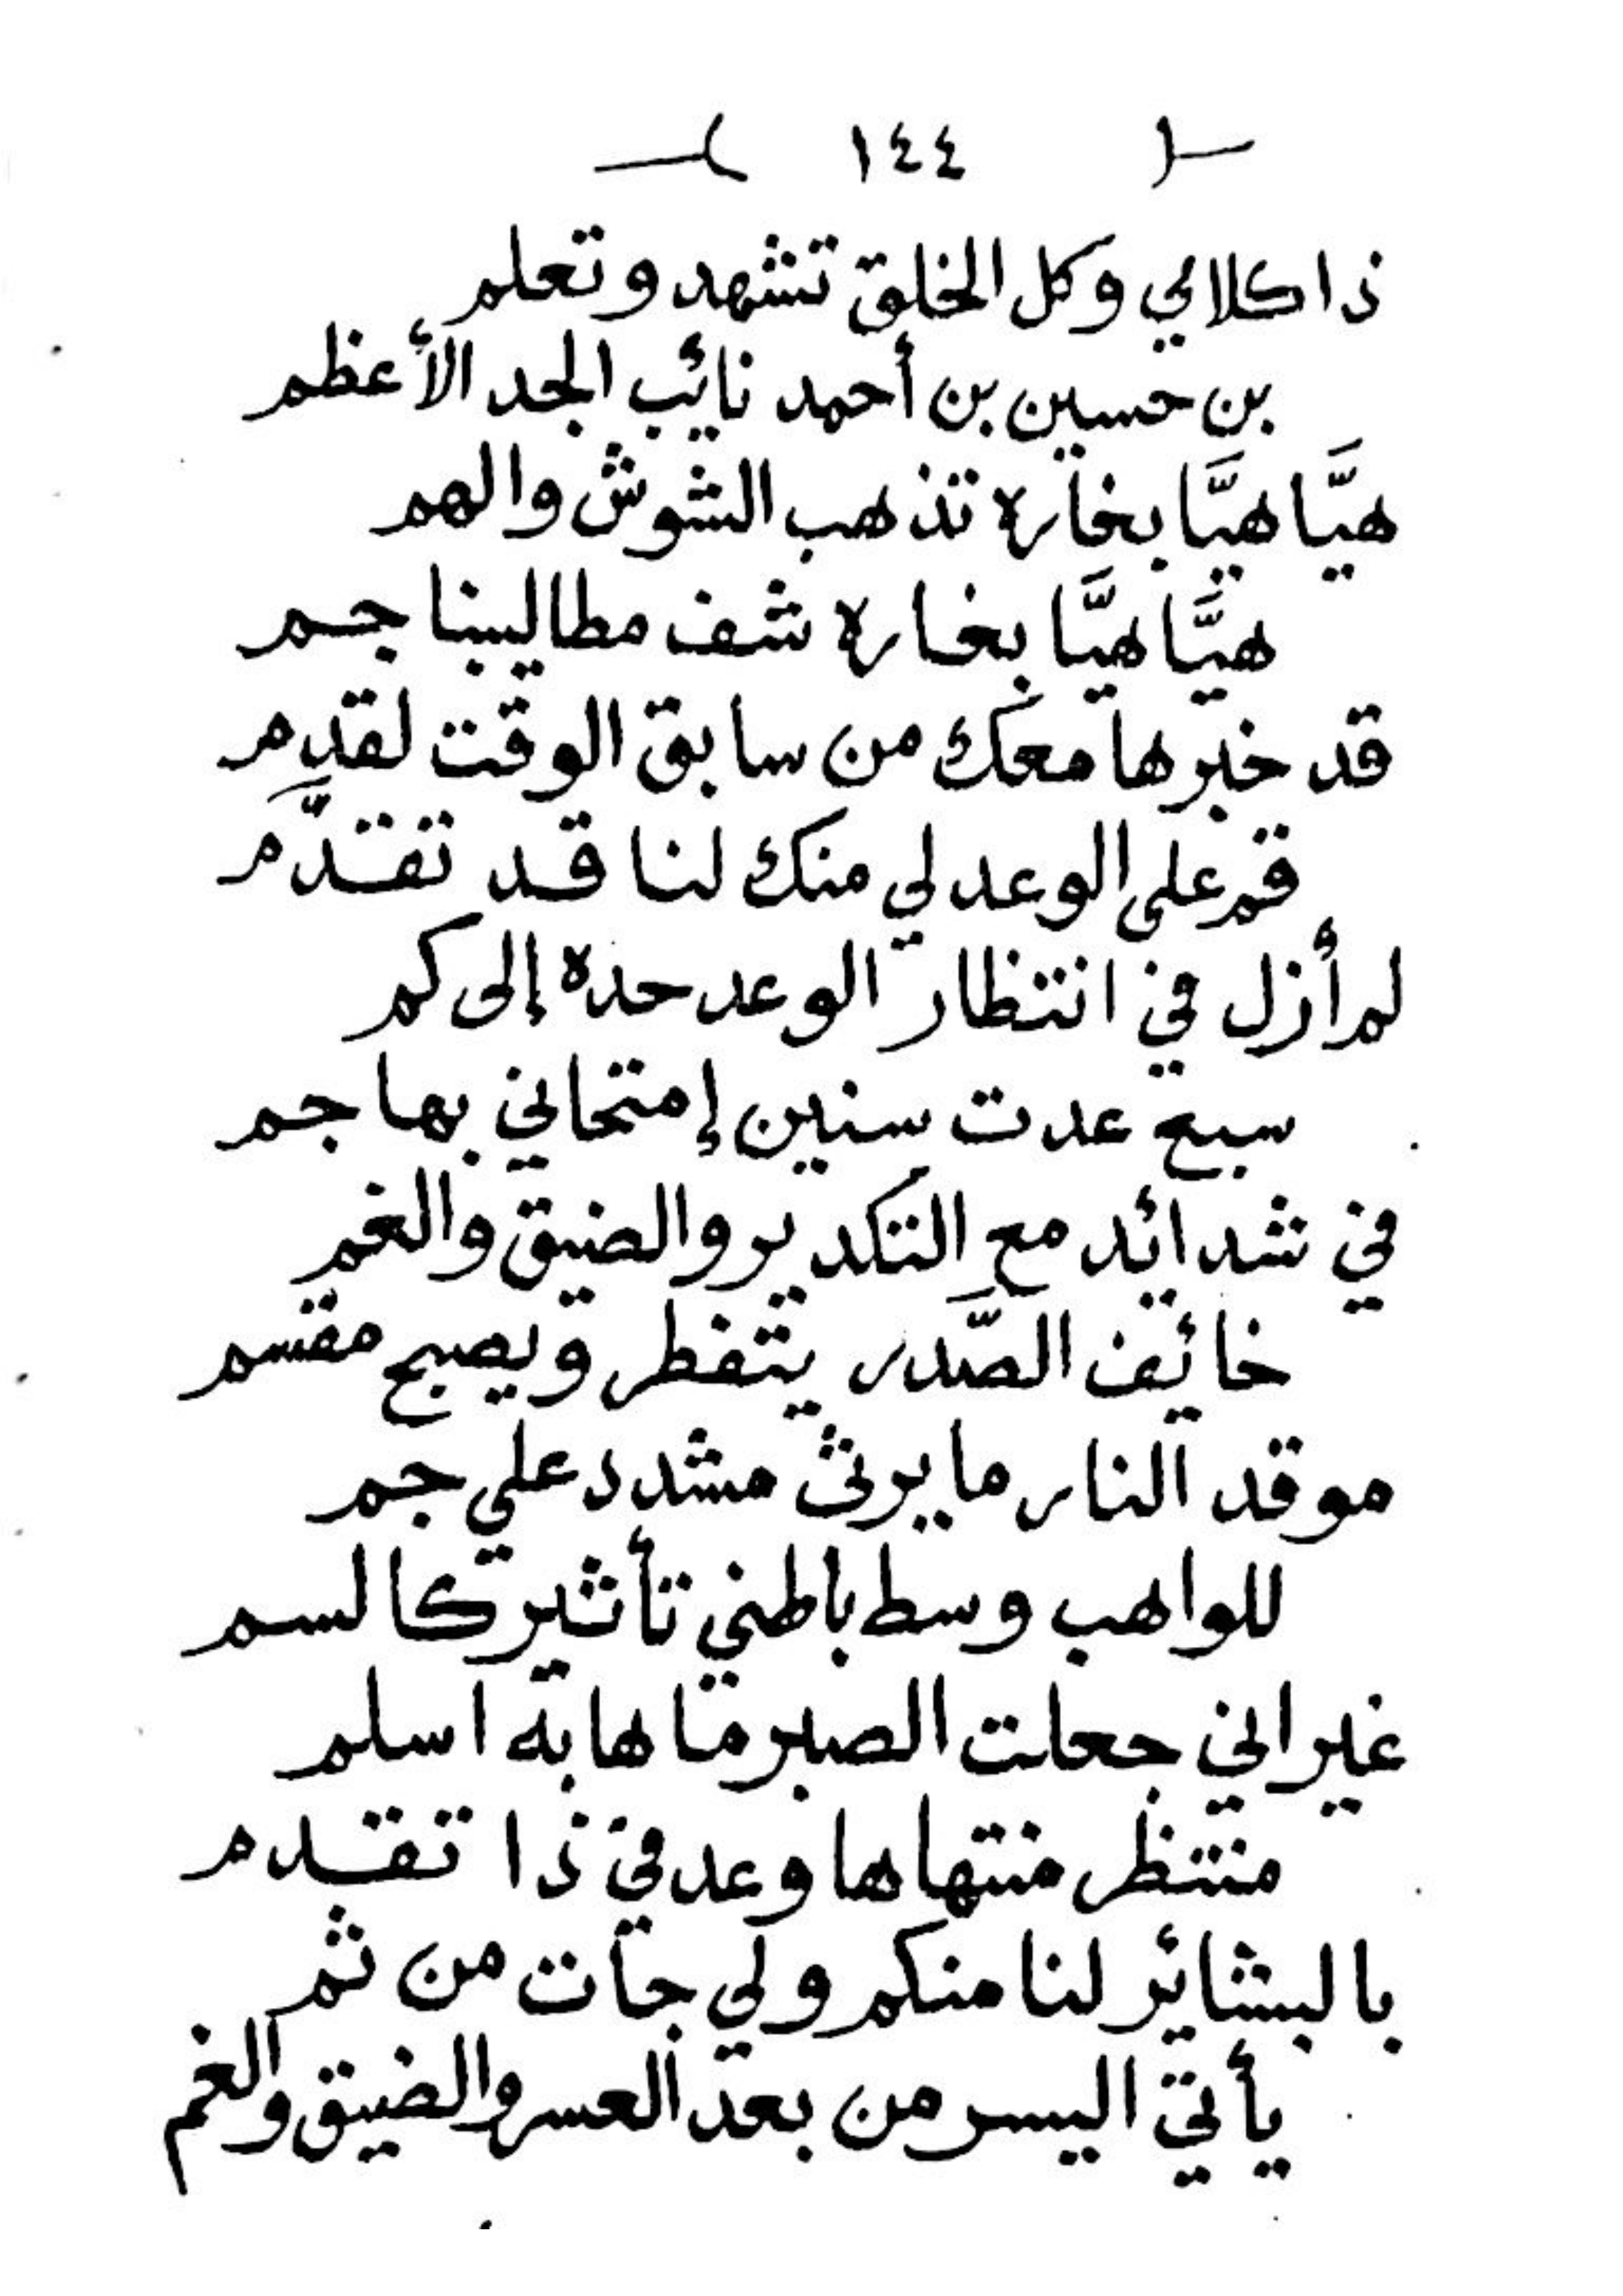 ( ١٤٤ )
ذا كلامي وكل الخلق تشهد وتعلم
بن حسين بن أحمد نائب الجد الأعظم
هيَّا هيَّا بغاره تذهب الشوش والهم
هيَّا هيَّا بغاره شف مطاليبنا جم
قد خبرها معك من سابق الوقت لقدم
قم على الوعد لي منك لنا قد تقدَّم
لم أزل في انتظار الوعد حده إلى كم
سبع عدت سنين إمتحاني بها جم
في شدائد مع التكدير والضيق والغم
خائف الصَّدر يتفطر ويصبح مقسم
موقد النار ما يرث مشدد علي جم
للواهب وسط باطني تأثير كالسم
غير اني جعلت الصبر ما ها به اسلم
منتظر منتهاها وعد في ذا تقدم
بالبشائر لنا منكم ولي جات من ثم
يأتي اليسر من بعد العسر والضيق والغم